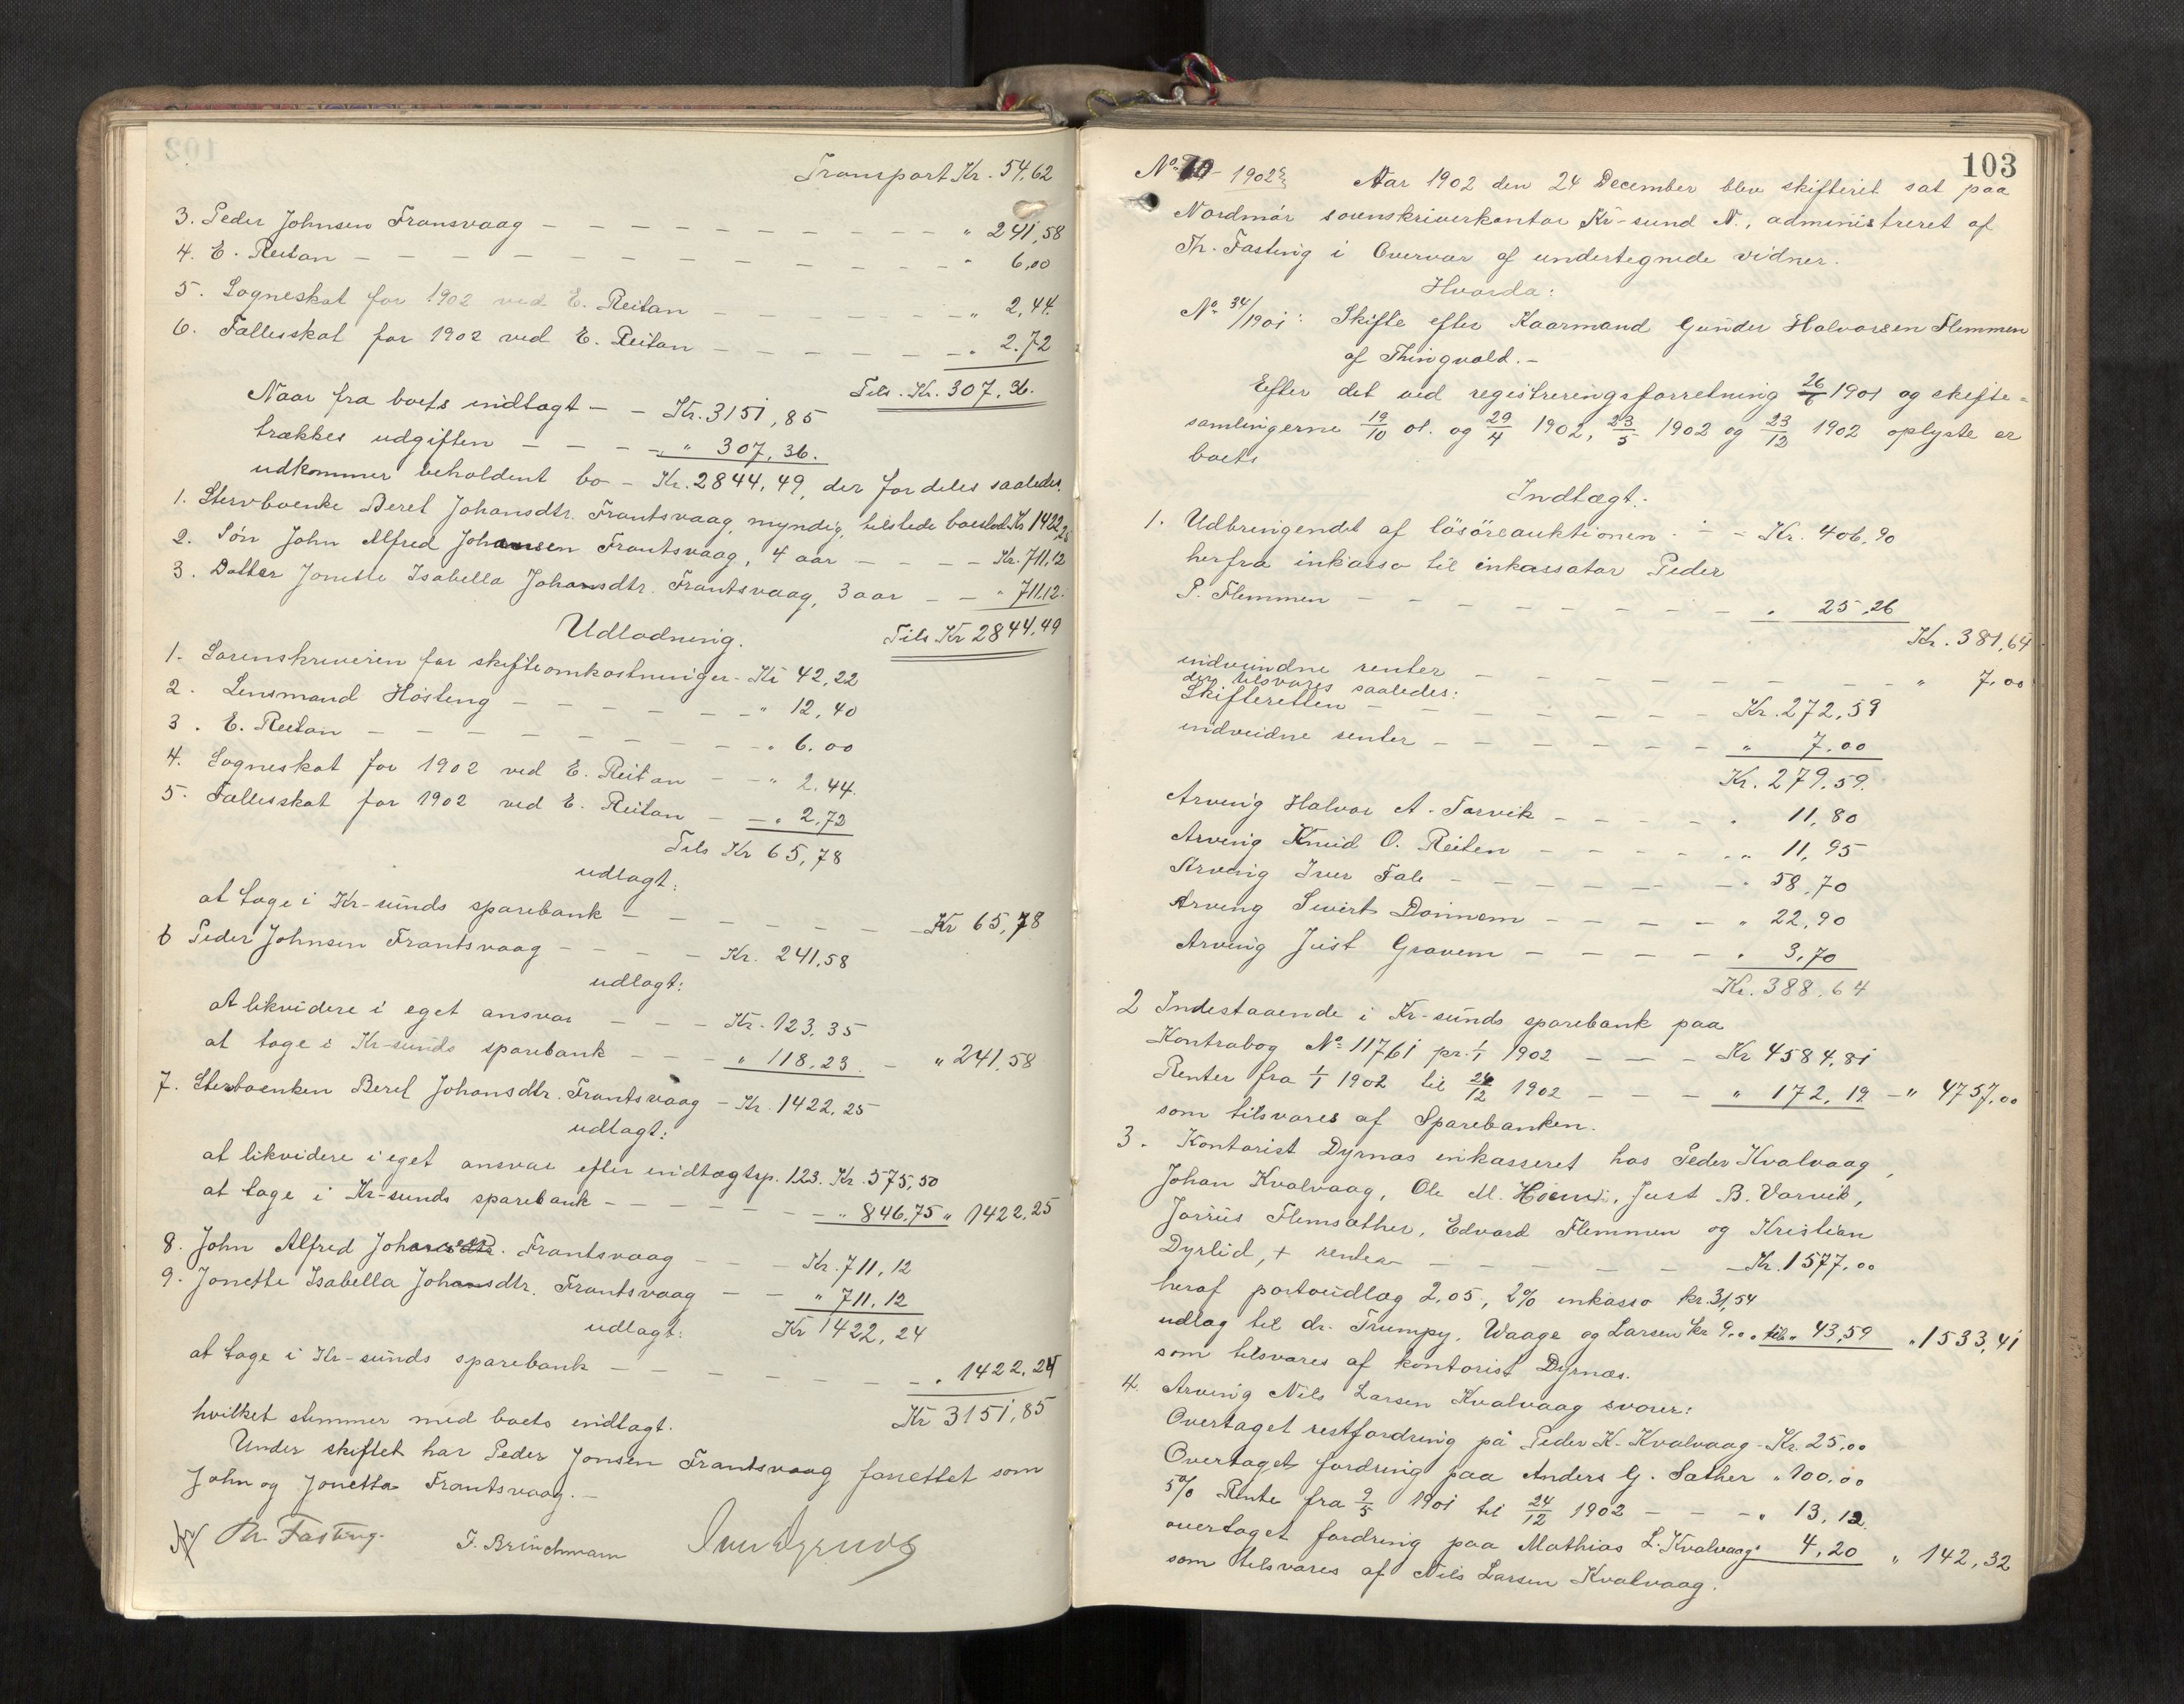 Transport Kr. 54,62
3. Peder Johnsen Fransvaag — — — — — — — — — — " 241,58
4. E. Reitan — — — — — — — — — — - 6,00
5. Sogneskat for 1902 ved E. Reitan — — — — — — " 2,44.
6. Fællesskat for 1902 ved E. Reitan — — — — — — " 2.72
Tils. Kr. 307,36.
Naar fra boets indtægt — — Kr. 3151,85
trækkes udgiften — — — — " 307,36.
udkommer beholdent bo — Kr. 2844,49, der fordeles saaledes.
1. Stervboenke Beret Johansdtr. Frantsvaag, myndig, tilstede boeslod Kr 1422,25
2. Søn John Alfred Johansen Frantsvaag, 4 aar — — — — Kr. 711,12
3. Datter Jonette Isabella Johansdtr. Frantsvaag, 3 aar — — " 711,12.
Tils Kr 2844,49
Udlodning.
1. Sorenskriveren for skifteomkostninger - Kr 42,22
2. Lensmand Høsteng — — — — — — " 12,40
3. E. Reitan — — — — — — — — — " 6.00
4. Sogneskat for 1902 ved E. Reitan — — " 2,44.
5. Fællesskat for 1902 ved E. Reitan — — " 2,72
Tils Kr 65,78
udlagt:
at tage i Kr-sunds sparebank — — — — — — — Kr 65,78
6 Peder Johnsen Frantsvaag — — — — Kr. 241,58
udlagt:
at likvidere i eget ansvar — — — Kr. 123,35
at tage i Kr-sunds sparebank — — — " 118,23. — " 241,58
7. Stervboenken Beret Johansdtr. Frantsvaag — Kr. 1422,25
udlagt:
at likvidere i eget ansvar efter indtægtsp. 123. Kr. 575,50
at tage i Kr-sunds sparebank — — — — — — " 846,75 " 1422,25
8. John Alfred Johansen. Frantsvaag — — — Kr. 711,12
9. Jonette Isabella Johansdtr. Frantsvaag — — " 711,12
udlagt: Kr 1422,24
at tage i Kr-sunds sparebank — — — — — — — " 1422,24
hvilket stemmer med boets indtægt. Kr 3151,85
Under skiftet har Peder Jonsen Frantsvaag forrettet som
John og Jonetta Frantsvaag. —
Th. Fasting. J. Brinchmann
103
No 10 - 1902 Aar 1902 den 24 December blev skifteret sat paa
Nordmör sorenskriverkontor Kr-sund N., administreret af
Th. Fasting i Overvær af undertegnede vidner.
Hvorda:
No 34/1901: Skifte efter Kaarmand Gunder Halvorsen Flemmen
af Thingvold. —
Efter det ved registreringsforretning 26/6 1901 og skifte=
samlingerne 19/10 01. og 29/4 1902, 23/5 1902 og 23/12 1902 oplyste er
boets
Indtægt:
1. Udbringendet af lösöreauktionen — — Kr. 406,90
herfra inkasso til inkassator Peder
P. Flemmen — — — — — — — — — " 25,26
Kr. 381,64
indvundne renter — — — — — — — — — " 7.00
der tilsvares saaledes:
Skifteretten — — — — — — — — Kr. 272,59
indvundne renter — — — — — — — " 7.00
Kr. 279.59.
Arving Halvor A. Torvik — — — — — " 11,80
Arving Knud O. Reiten — — — — " 11,95
Arving Iver Fale — — — — — — " 58,70
Arving Sivert Donnem — — — — — " 22,90
Arving Just Gravem — — — — — " 3,70
Kr. 388,64
2 Indestaaende i Kr-sunds sparebank paa
Kontrabog No 11761 pr. 1/1 1902 — — — Kr 4584,81
Renter fra 1/1 1902 til 24/12 1902 — — — " 172,19 — " 4757,00
som tilsvares af Sparebanken.
3. Kontorist Dyrnæs inkasseret hos Peder Kvalvaag,
Johan Kvalvaag, Ole M. Hoem, Just B. Varvik,
Jørius Flemsæther, Edvard Flemmen og Kristian
Dyrlid, + renter — — — — — — — Kr. 1577.00
heraf portoudlæg 2,05, 2% inkasso kr. 31,54
udlæg til dr. Trumpy, Waage og Larsen kr 9.00 tils. " 43,59 " 1533,41
som tilsvares af kontorist Dyrnæs.
4. Arving Nils Larsen Kvalvaag svarer:
Overtaget restfordring på Peder K. Kvalvaag - Kr. 25,00
Overtaget fordring paa Anders G. Sæther " 100,00
5% Rente fra 9/5 1901 til 24/12 1902 — — — " 13,12
overtaget fordring paa Mathias L. Kvalvaag " 4,20 " 142,32
som tilsvares af Nils Larsen Kvalvaag.